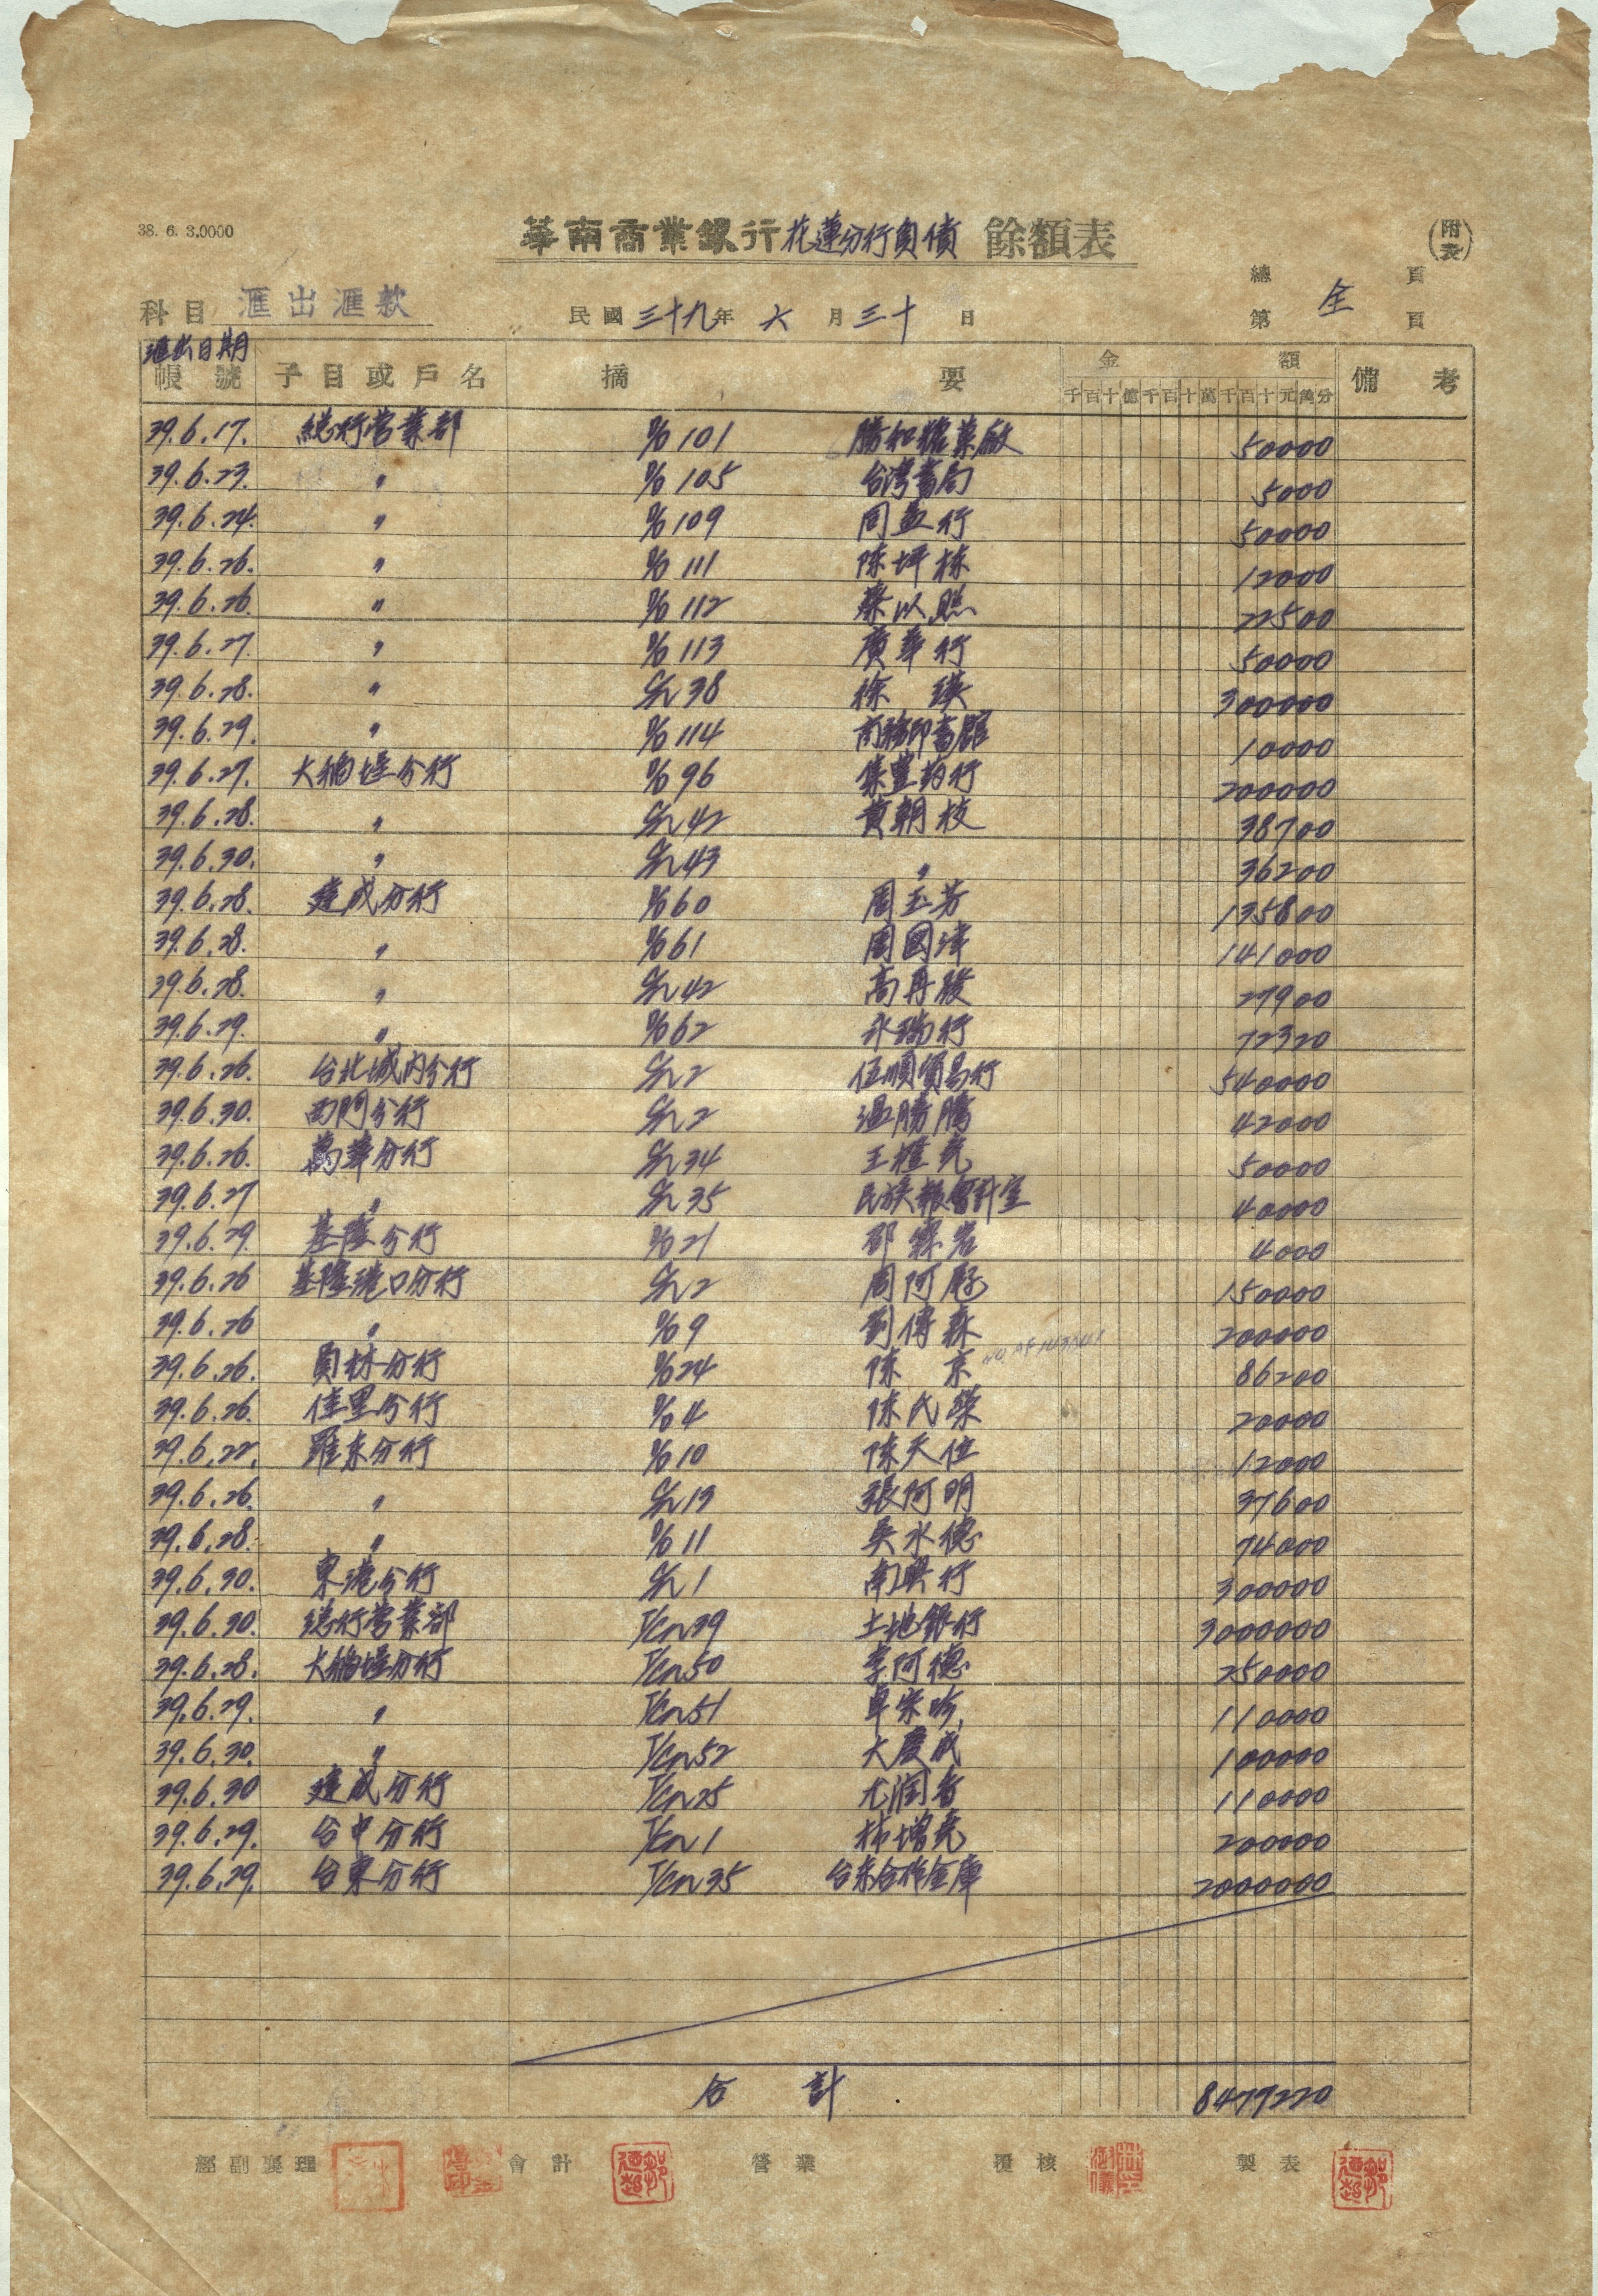 38. 6. 3,0000
華南商業銀行花蓮分行負債 餘額表
(附表)
總 頁
科目 滙出滙款 民國三十九年 六 月三十 日 第 全 頁
滙出日期
帳號 子目或戶名 摘要 金額 備考
千百十億千百十萬千百十元角分
39.6.17. 總行營業部 D/D 101 勝和糖菓廠 50000
39.6.23. 〃 D/D 105 台灣書局 5000
39.6.24. 〃 D/D 109 同益行 50000
39.6.26. 〃 D/D 111 陳坪林 12000
39.6.26. 〃 D/D 112 蔡以照 22500
39.6.27. 〃 D/D 113 廣華行 50000
39.6.28. 〃 38 徐瑛 300000
39.6.29. 〃 D/D 114 商務印書館 10000
39.6.27. 大稻埕分行 D/D 96 集豐葯行 200000
39.6.28. 〃 42 黃朝枝 38700
39.6.30. 〃 43 〃 36200
39.6.28. 建成分行 D/D 60 周玉芳 135800
39.6.28. 〃 D/D 61 周國津 141000
39.6.28. 〃 42 高再發 27900
39.6.29. 〃 D/D 62 永瑞行 72320
39.6.26. 台北城內分行 2 伍順貿易行 540000
39.6.30. 西門分行 2 溫勝腾 42000
39.6.26. 萬華分行 34 王 50000
39.6.27 〃 35 民族報會計室 40000
39.6.29. 基隆分行 D/D 21 4000
39.6.26 基隆港口分行 2 周阿 150000
39.6.26 〃 D/D 9 劉傳森 200000
39.6.26. 員林分行 D/D 24 陳京 86200
39.6.26. 佳里分行 D/D 4 陳氏榮 20000
39.6.22. 羅東分行 D/D 10 陳天位 12000
39.6.26. 〃 13 張阿明 37600
39.6.28. 〃 D/D 11 吳水德 74000
39.6.30. 東港分行 1 南興行 300000
39.6.30. 總行營業部 39 土地銀行 3000000
39.6.28. 大稻埕分行 50 李阿德 250000
39.6.29. 〃 51 卓宋吟 110000
39.6.30. 〃 52 大慶成 100000
39.6.30 建成分行 25 尤潤香 110000
39.6.29. 台中分行 1 林增堯 200000
39.6.29. 台東分行 35 台東合作金庫 2000000
合計 8477220
經副襄理 會計 營業 覆核 製表